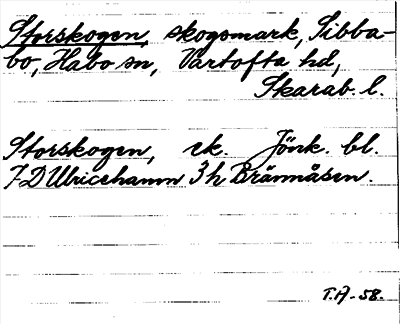 Storskogen, skogsmark, Sibba-
bo, Habo sn, Vartofta hd,
Skarab. l.
Storskogen, ek. Jönk. bl.
7D Ulricehamn 3h Brännåsen.
T.A. -58.